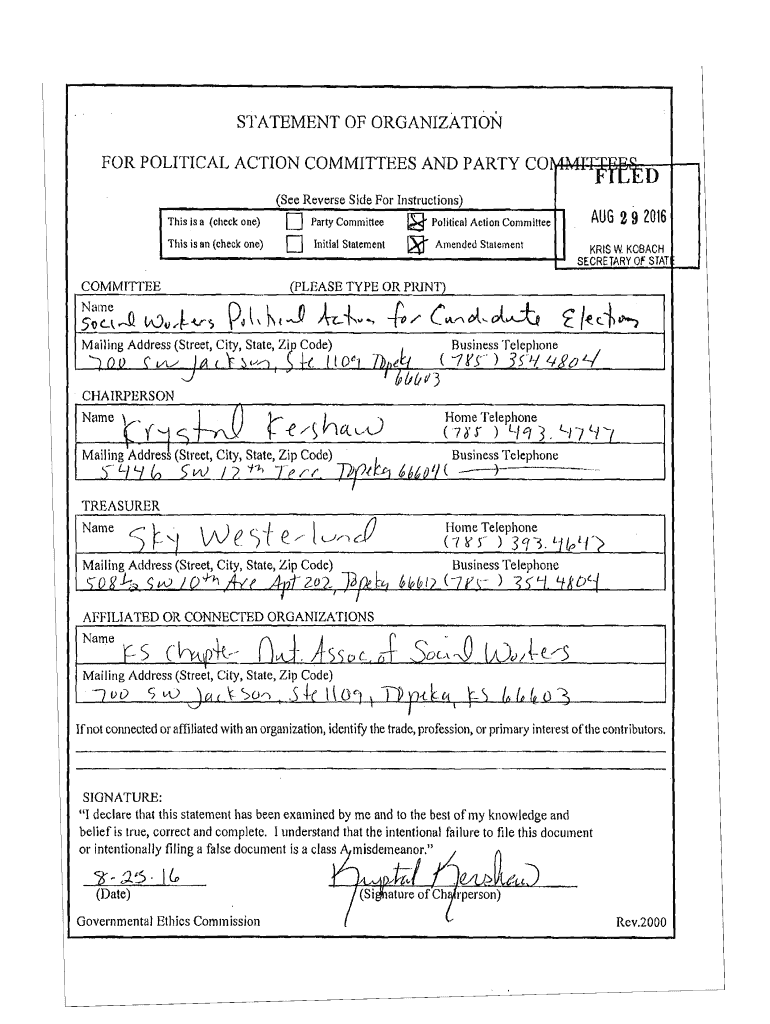 STATEMENT OF ORGANIZATION
FOR POLITICAL ACTION COMMITTEES AND PARTY COMMITTEES
FILED
AUG 29 2016
KRIS W. KOBACH
SECRETARY OF STATE
(See Reverse Side For Instructions)
This is a (check one) Party Committee Political Action Committee
This is an (check one) Initial Statement Amended Statement
COMMITTEE (PLEASE TYPE OR PRINT)
Name
Social Workers Political Action for Candidate Election
Mailing Address (Street, City, State, Zip Code) Business Telephone
700 SW Jackson, Ste 1109 Topeka (785) 354 4804
66603
CHAIRPERSON
Name Krystal Kershaw Home Telephone
(785) 493.4747
Mailing Address (Street, City, State, Zip Code) Business Telephone
5446 SW 12th Terr. Topeka 66604 ( )
TREASURER
Name Sky Westerlund Home Telephone
(785) 393.4647
Mailing Address (Street, City, State, Zip Code) Business Telephone
508½ SW 10th Ave Apt 202, Topeka 66612 (785) 354.4804
AFFILIATED OR CONNECTED ORGANIZATIONS
Name KS Chapter Nat. Assoc. of Social Workers
Mailing Address (Street, City, State, Zip Code)
700 SW Jackson, Ste 1109, Topeka, KS 66603
If not connected or affiliated with an organization, identify the trade, profession, or primary interest of the contributors.
SIGNATURE:
"I declare that this statement has been examined by me and to the best of my knowledge and
belief is true, correct and complete. I understand that the intentional failure to file this document
or intentionally filing a false document is a class A misdemeanor."
8-25-16 Krystal Kershaw
(Date) (Signature of Chairperson)
Governmental Ethics Commission Rev.2000